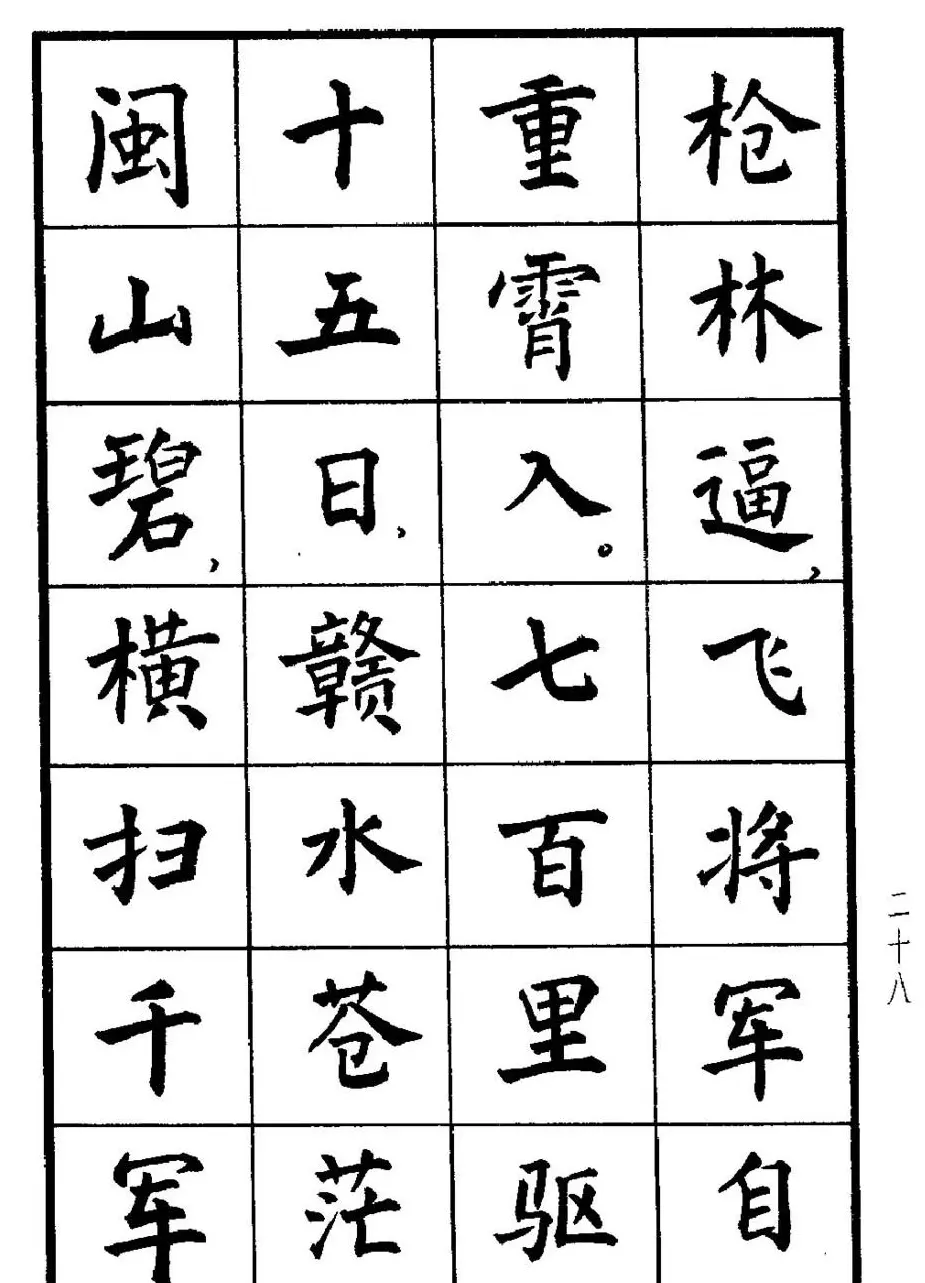 枪林逼，飞将军自
重霄入。七百里驱
十五日，赣水苍茫
闽山碧，横扫千军
二十八